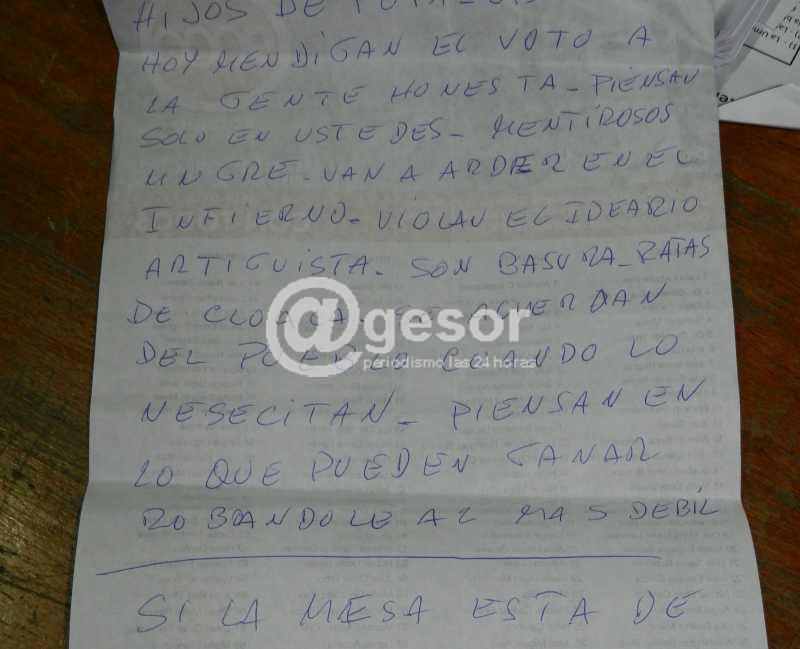 HIJOS DE PUTA
HOY MENDIGAN EL VOTO A
LA GENTE HONESTA - PIENSAN
SOLO EN USTEDES - MENTIROSOS
MUGRE - VAN A ARDER EN EL
INFIERNO - VIOLAN EL IDEARIO
ARTIGUISTA. SON BASURA - RATAS
DE CLOACA. SE ACUERDAN
DEL PUEBLO CUANDO LO
NESECITAN - PIENSAN EN
LO QUE PUEDEN GANAR
ROBANDOLE AL MAS DEBIL
SI LA MESA ESTA DE
@gesor
periodismo las 24 horas